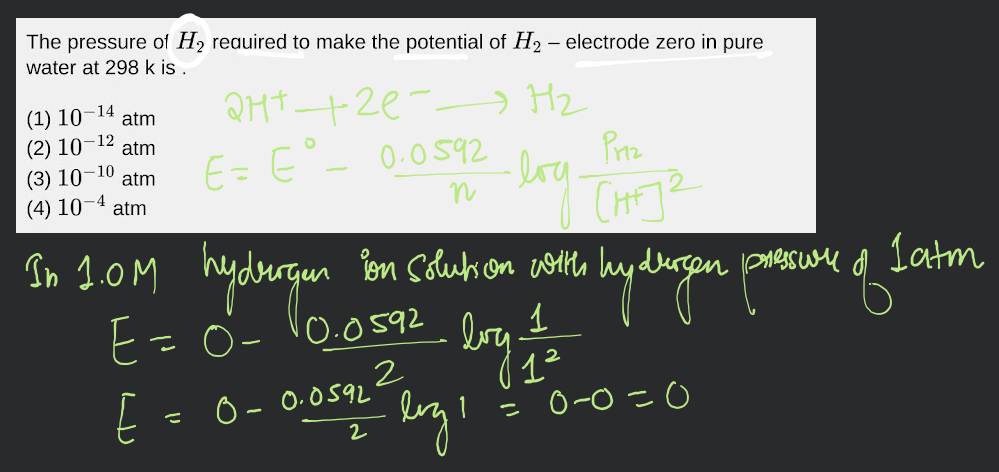 The pressure of H₂ required to make the potential of H₂ – electrode zero in pure
water at 298 k is :
(1) 10⁻¹⁴ atm
(2) 10⁻¹² atm
(3) 10⁻¹⁰ atm
(4) 10⁻⁴ atm
2H⁺ + 2e⁻ → H₂
E = E° - 0.0592/n log P_H₂/[H⁺]²
In 1.0M hydrogen ion solution with hydrogen pressure of 1atm
E = 0 - 0.0592/2 log 1/1²
E = 0 - 0.0592/2 log 1 = 0-0 = 0